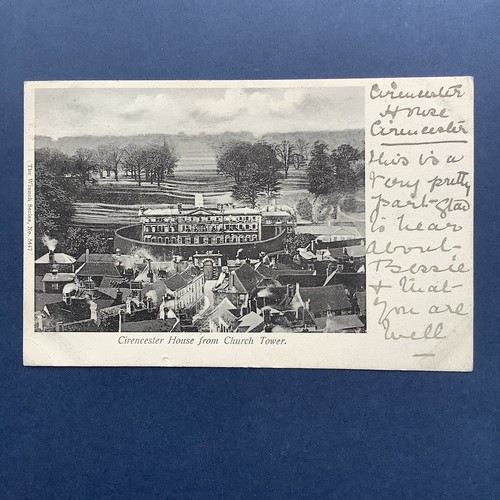 Cirencester
House
Cirencester
This is a
very pretty
part - Glad
to hear
about -
Bessie
& that
you are
well
The Wrench Series, No. 3447
Cirencester House from Church Tower.